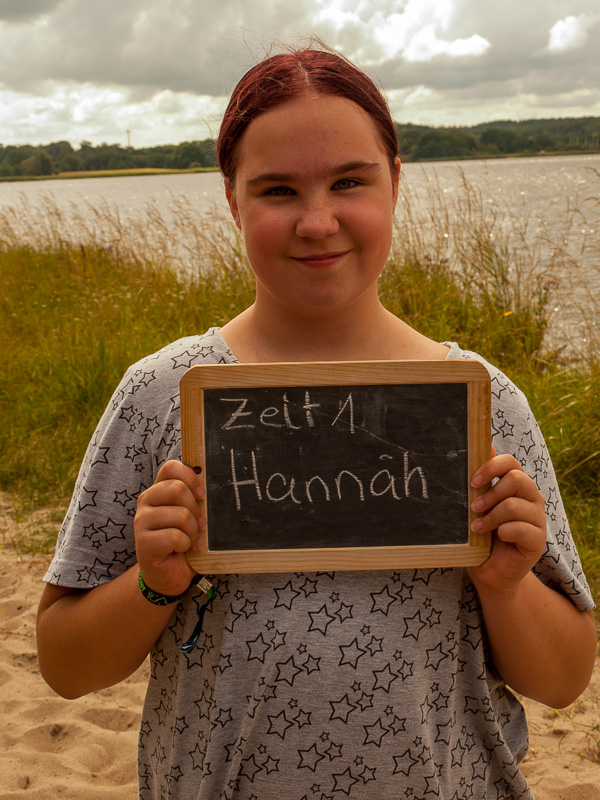 Zeit 1
Hannah